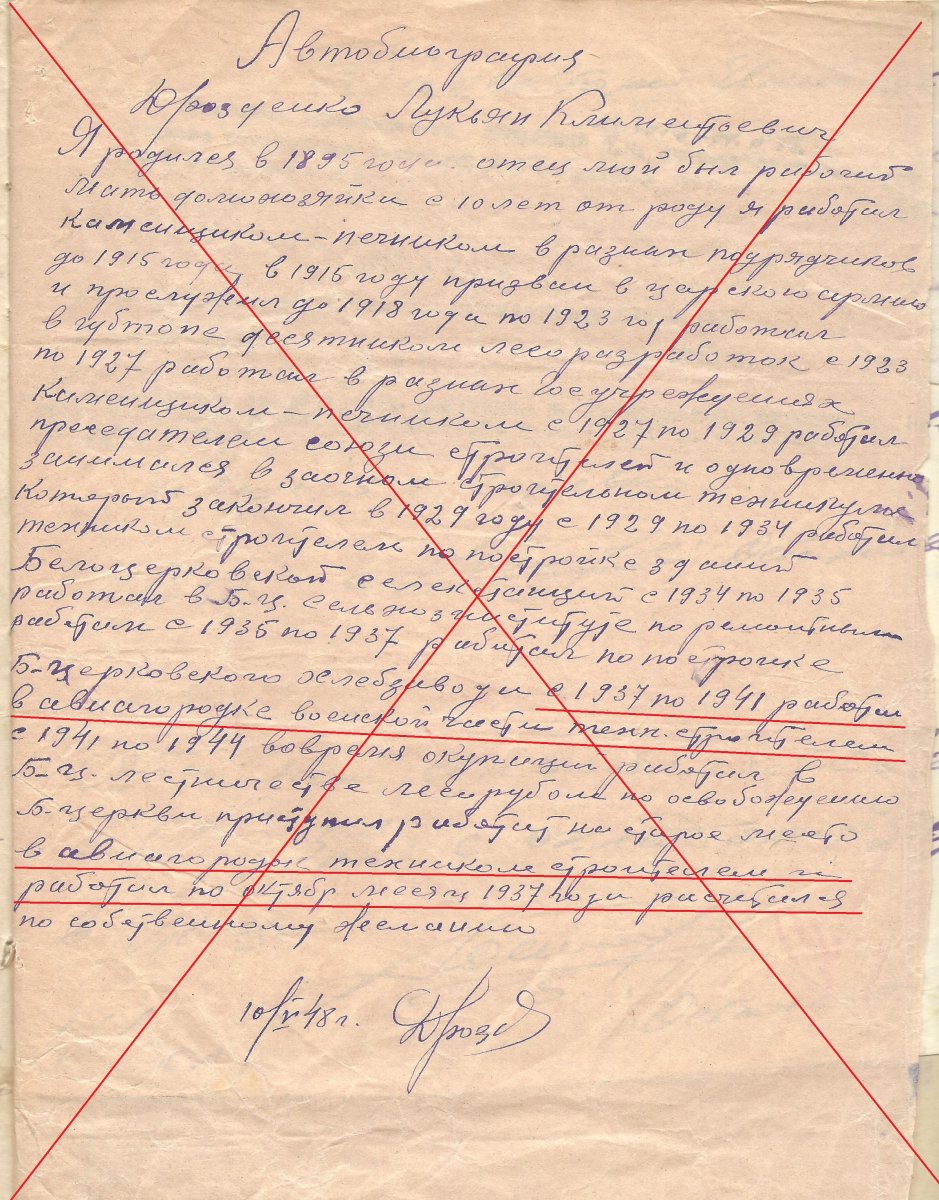 Автобиография
Дрозденко Лукьян Климентьевич
Я родился в 1895 года. отец мой был рабочий
мать домохозяйка с 10 лет от роду я работал
каменщиком-печником в разных подрядчиков
до 1915 года, в 1915 году призван в царскою армию
и прослужил до 1918 года по 1923 го, работал
в губтопе десятником лесоразработок с 1923
по 1927 работал в разных госучреждениях
каменщиком-печником с 1927 по 1929 работал
председателем союза строителей и одновременно
занимался в заочном строительном техникуме
который закончил в 1929 году с 1929 по 1934 работал
техником строителем по постройке зданий
Белоцерковской селекстанций с 1934 по 1935
работал в Б.Ц. сельхозинституте по ремонтным
работам с 1935 по 1937 работал по постройке
Б-церковского хлебзавода с 1937 по 1941 работал
в авиагородке воинской части техн. строителем
с 1941 по 1944 вовремя окупации работал в
Б-ц. лестничестве лесорубом по освобождению
Б-церкви приступил работат на старое место
в авиагородок техником строителем и
работал по октябр месяц 1937 года расчитался
по собственному желанию
10/V 48 г. Дрозд